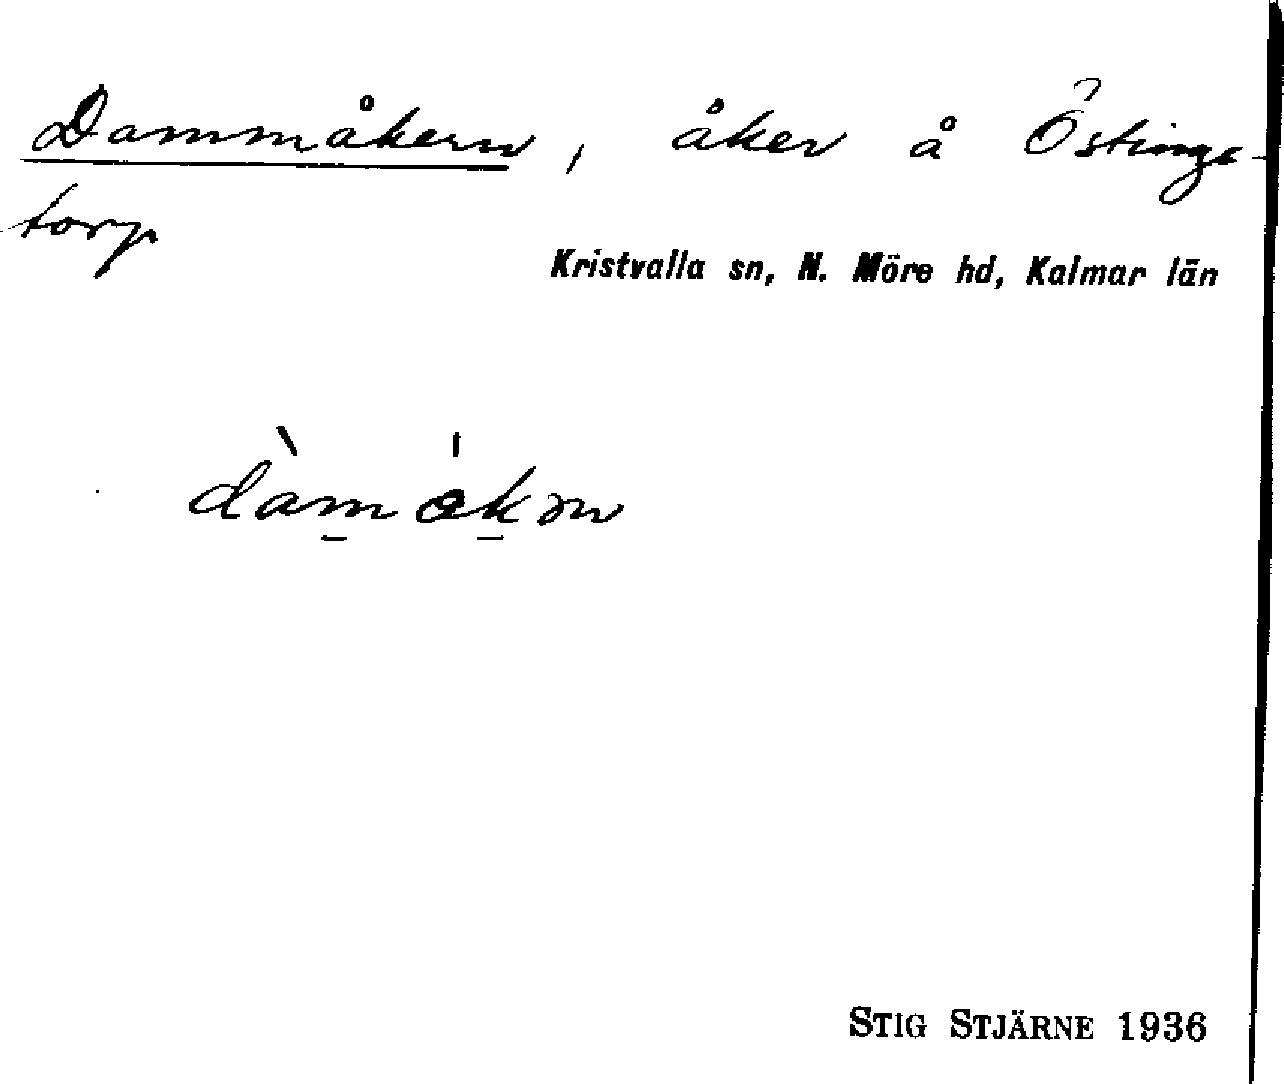 Dammåkern, åker å Östinge-
torp
Kristvalla sn, N. Möre hd, Kalmar län
STIG STJÄRNE 1936